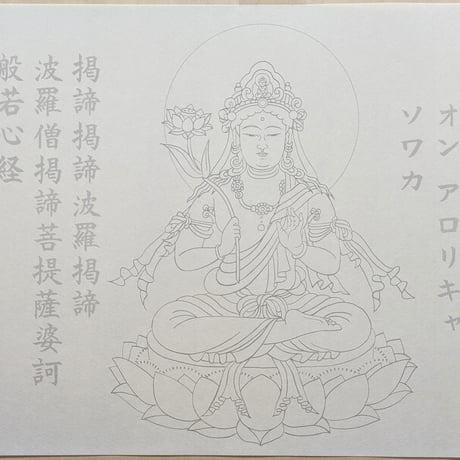 オン アロリキャ
ソワカ
掲諦掲諦波羅掲諦
波羅僧掲諦菩提薩婆訶
般若心経